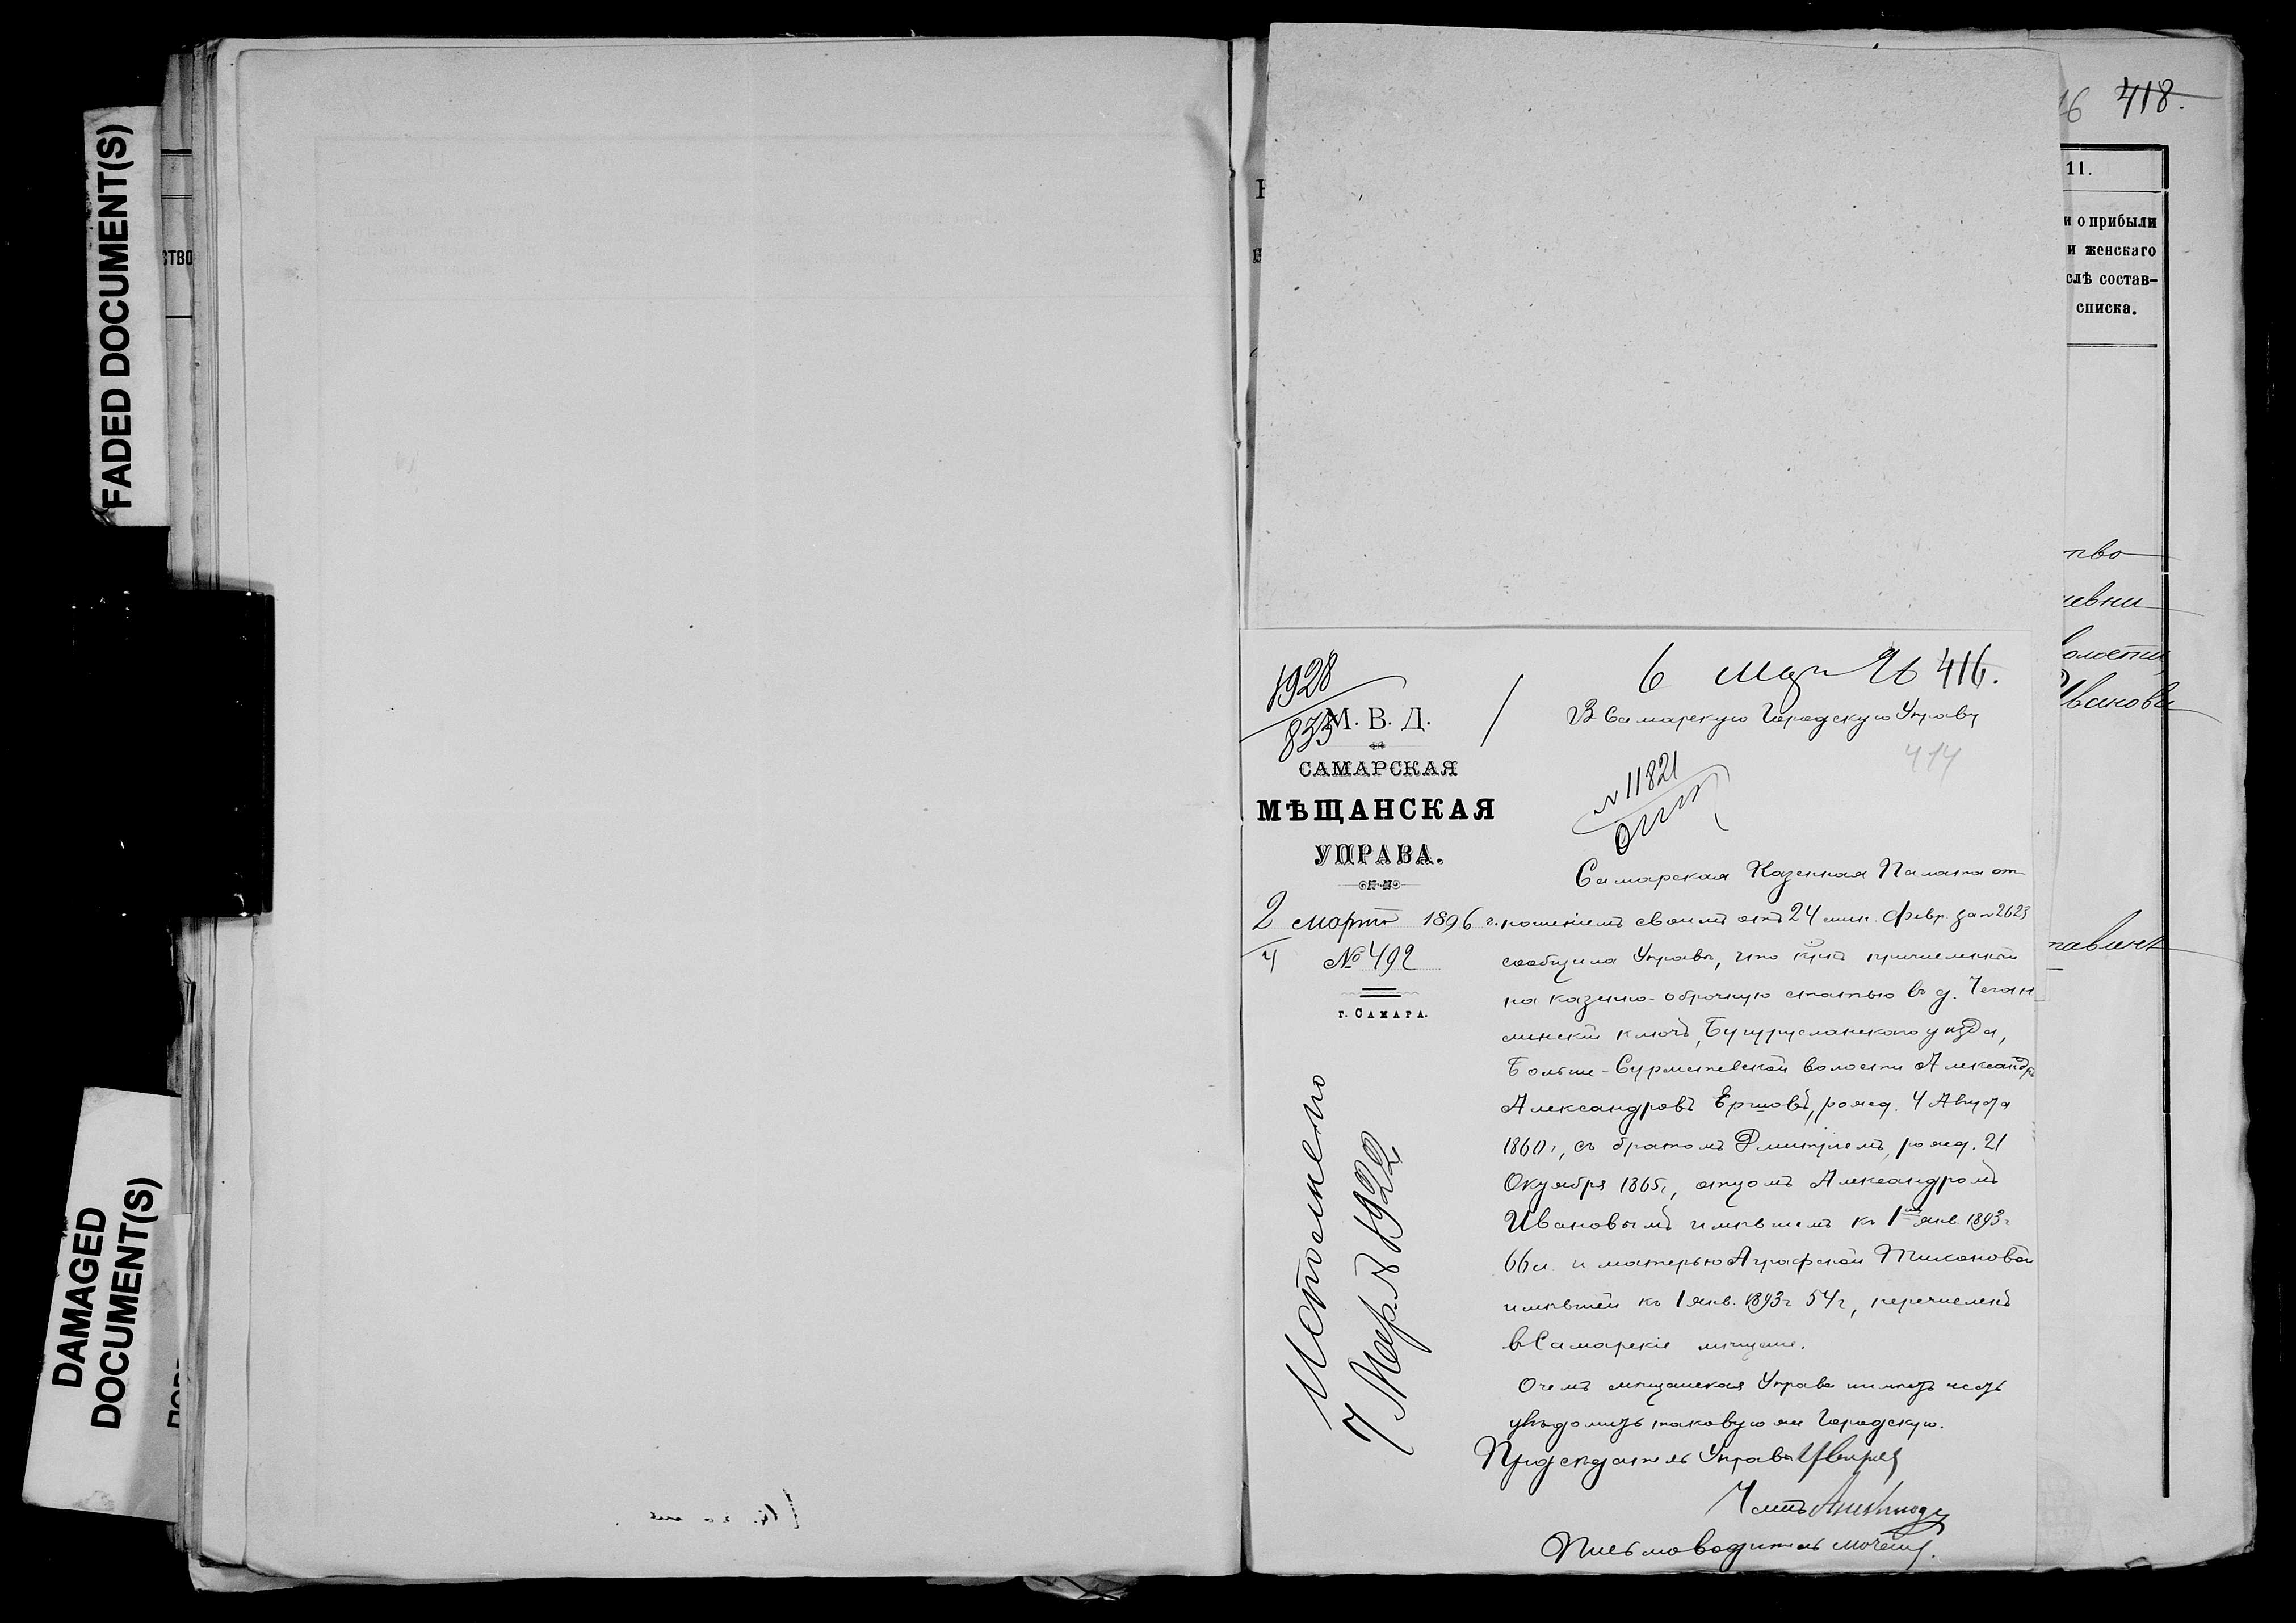 FADED DOCUMENT(S)
DAMAGED
DOCUMENT(S)
СТВО
418.
11.
и о прибыли
и женскаго
слѣ состав-
списка.
тво
олости
Иванова
1928
835
6 Мар 96 416.
М. В. Д.
САМАРСКАЯ
МѢЩАНСКАЯ
УПРАВА.
2 марта 1896 г.
4 № 492
г. САМАРА.
Въ Самарскую Городскую Управу
414
№ 11821
Самарская Казенная Палата от
ношеніемъ своимъ отъ 24 мин. Февр. за № 2623
сообщила Управѣ, что причисленный
на казенно-оброчную статью въ д.
ключъ, Бугурусланскаго уѣзда,
Больше-Сурметевской волости Александръ
Александровъ Ершовъ, рожд. 4 Августа
1860 г, съ братомъ Дмитріемъ, рожд. 21
Октября 1865 г, отцомъ Александромъ
Ивановымъ имѣвшемъ къ 1му янв. 1893 г
66 л. и матерью Аграфеной Тихоновой
имѣвшей къ 1 янв. 1893 г 54 г, перечисленъ
въ Самарскіе мѣщане.
О чемъ мѣщанская Управа имѣетъ честь
увѣдомить таковую же Городскую.
Предсѣдатель Управы
Членъ
Письмоводитель
Исполнено
7 Мар. № 1922